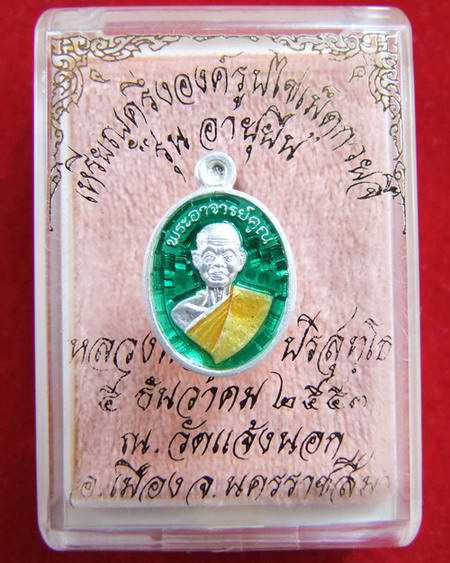 เหรียญครึ่งองค์รูปไข่เม็ดกวยจี๊
รุ่น อายุยืน
พระอาจารย์คูณ
หลวง ปริสุทฺโธ
๕ ธันวาคม ๒๕๕๓
ณ. วัดแจ้งนอก
อ.เมือง จ.นครราชสีมา